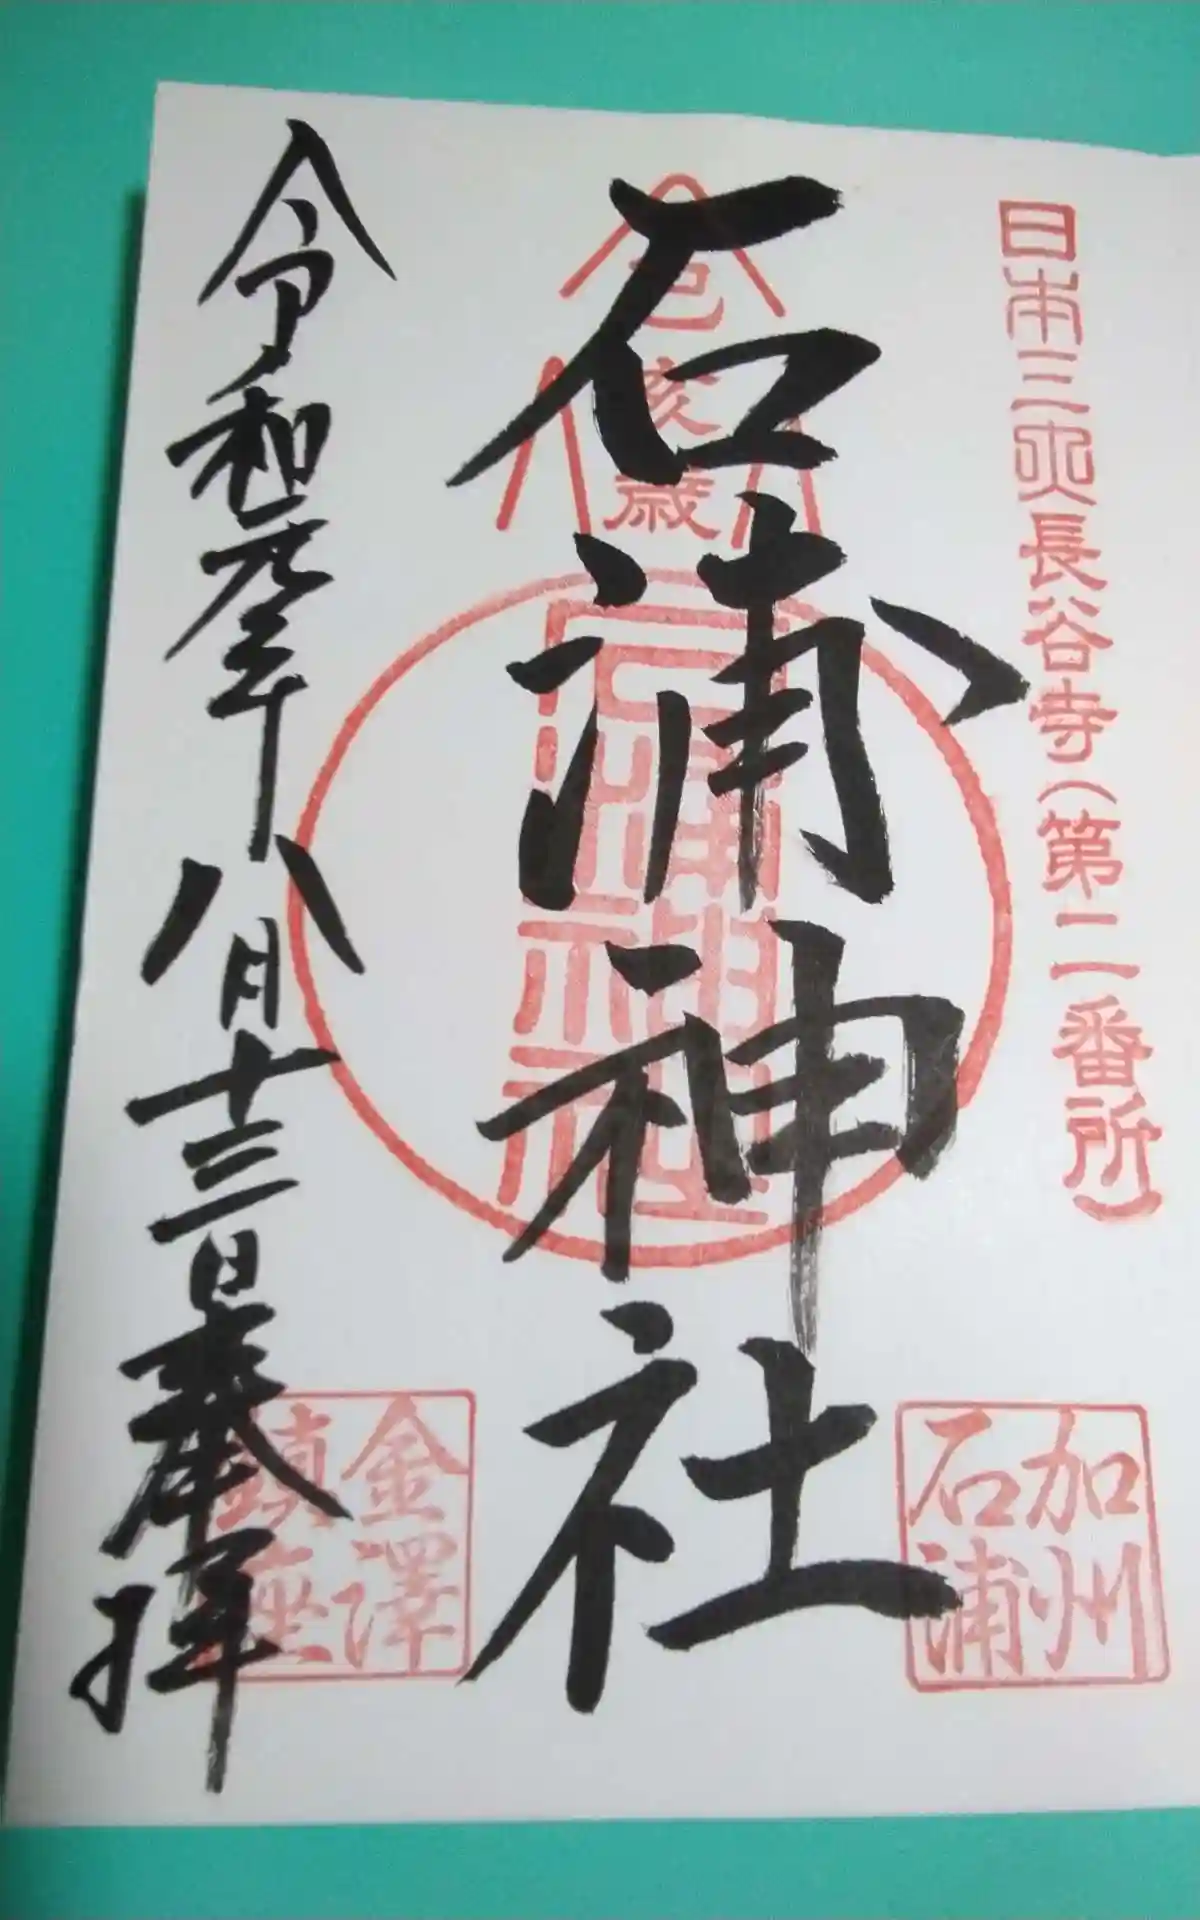 日本三所長谷寺(第二番所)
加州
石浦
己亥歳
石浦神社
石浦神社
令和元年八月十三日奉拝
金澤
鎮座